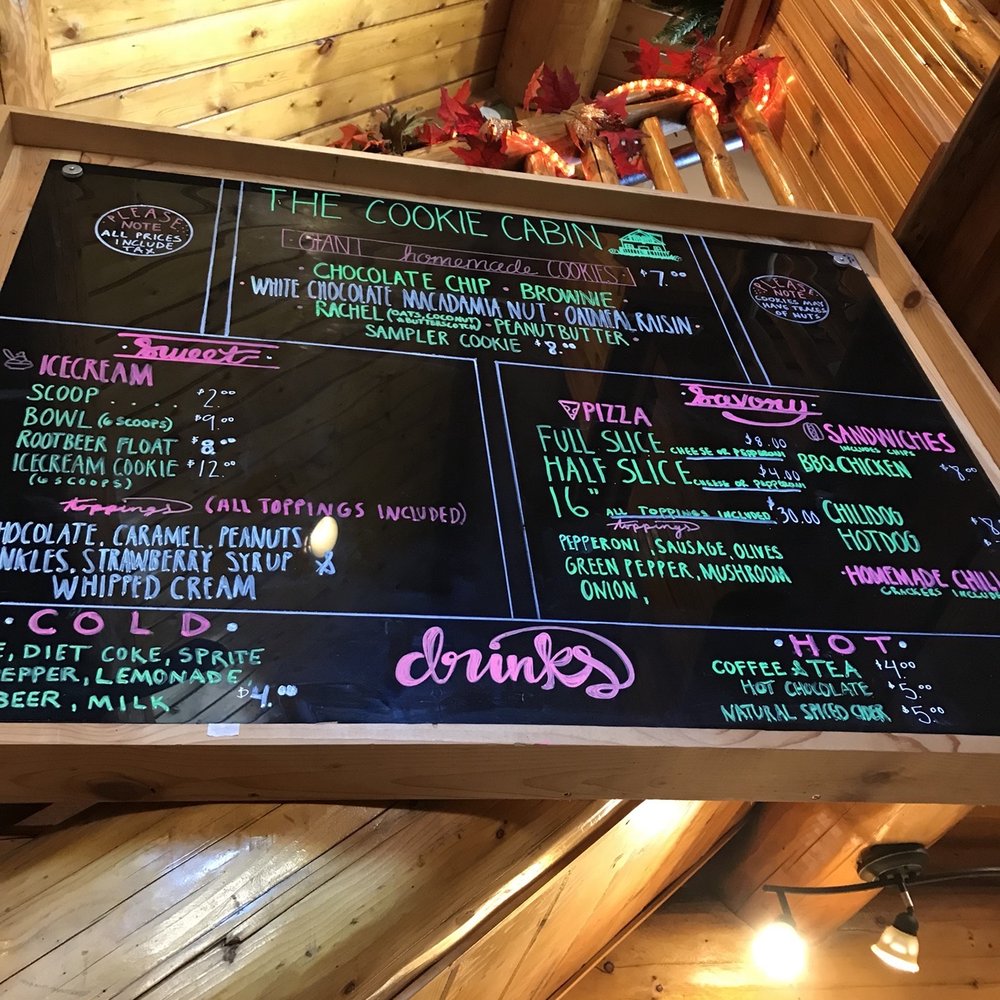 THE COOKIE CABIN
PLEASE
NOTE
ALL PRICES
INCLUDE
TAX
GIANT homemade COOKIES $7.00
CHOCOLATE CHIP · BROWNIE
WHITE CHOCOLATE MACADAMIA NUT · OATMEAL RAISIN ·
RACHEL (OATS, COCONUT, & BUTTERSCOTCH) · PEANUT BUTTER ·
SAMPLER COOKIE $8.00
PLEASE
NOTE
COOKIES MAY
HAVE TRACES
OF NUTS
Sweet
ICECREAM
SCOOP ..... $2.00
BOWL (6 SCOOPS) $9.00
ROOTBEER FLOAT $8.00
ICECREAM COOKIE $12.00
(6 SCOOPS)
toppings (ALL TOPPINGS INCLUDED)
HOCOLATE, CARAMEL, PEANUTS,
NKLES, STRAWBERRY SYRUP &
WHIPPED CREAM
Savory
PIZZA
FULL SLICE CHEESE OR PEPPERONI $8.00
HALF SLICE CHEESE OR PEPPERONI $4.00
16" ALL TOPPINGS INCLUDED $30.00
toppings
PEPPERONI, SAUSAGE, OLIVES
GREEN PEPPER, MUSHROOM
ONION,
SANDWICHES
INCLUDES CHIPS
BBQ CHICKEN $8.00
CHILIDOG $8
HOTDOG $
HOMEMADE CHILI
CRACKERS INCLUDE
drinks
· COLD ·
E, DIET COKE, SPRITE
EPPER, LEMONADE,
BEER, MILK $4.00
· HOT ·
COFFEE & TEA $4.00
HOT CHOCOLATE $5.00
NATURAL SPICED CIDER $5.00